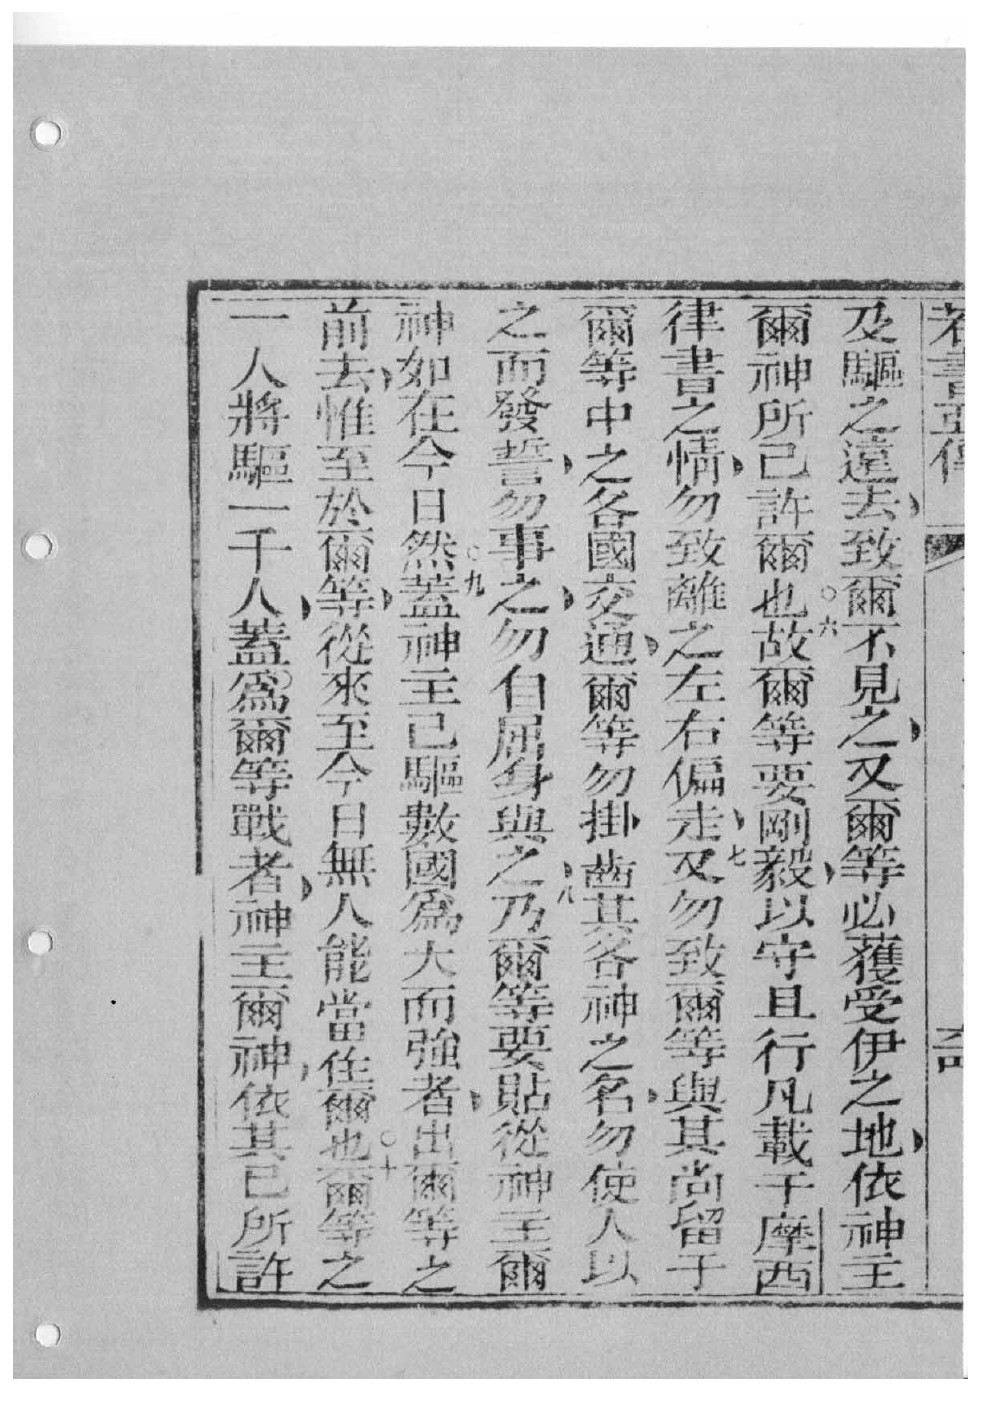 若書亞傳
及驅之遠去致爾不見之又爾等必獲受伊之地依神主
爾神所已許爾也○六故爾等要剛毅以守且行凡載于摩西
律書之情勿致離之左右偏走七又勿致爾等與其尚留于
爾等中之各國交通爾等勿掛齒其各神之名勿使人以
之而發誓勿事之勿自屈身與之八乃爾等要貼從神主爾
神如在今日然○九蓋神主已驅數國為大而強者出爾等之
前去惟至於爾等從來至今日無人能當住爾也○十爾等之
一人將驅一千人蓋為爾等戰者神主爾神依其已所許